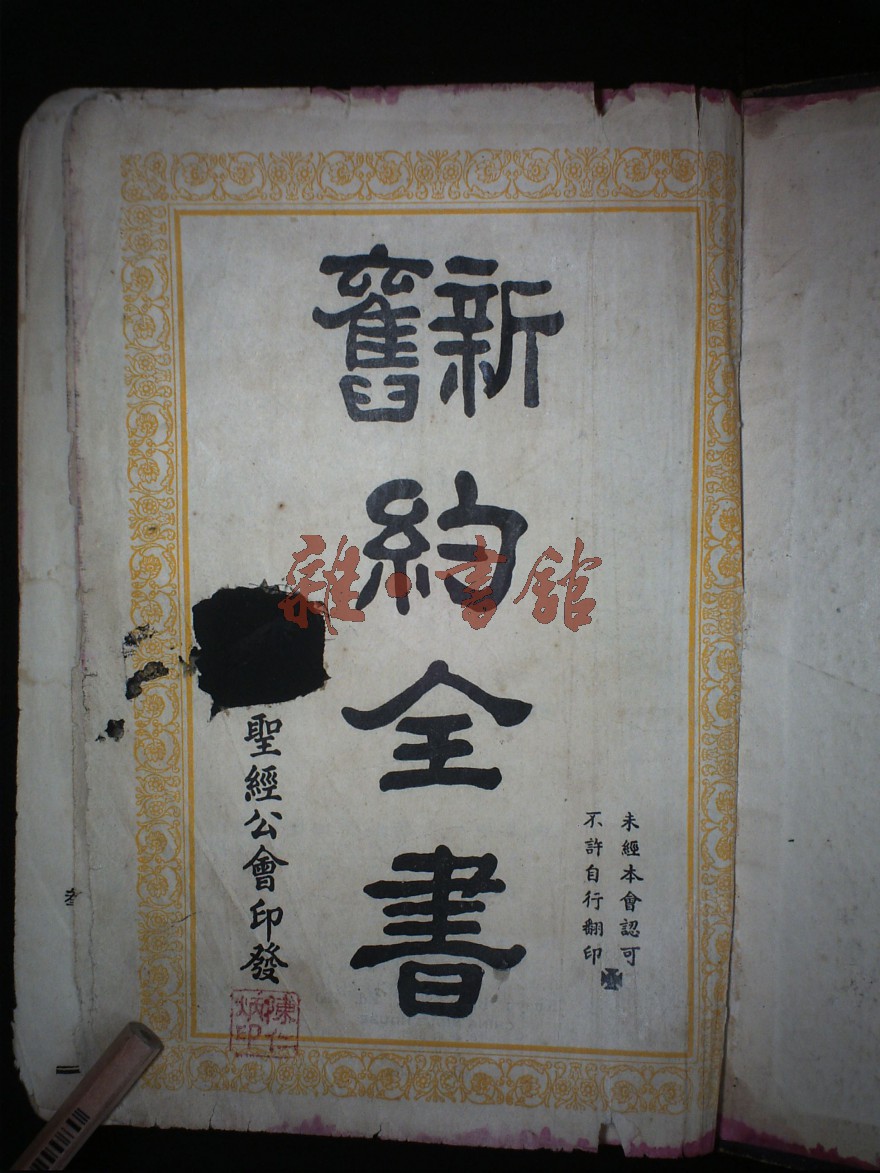 新舊約全書
未經本會認可
不許自行翻印
聖經公會印發
陳仁炳印
雜·書館